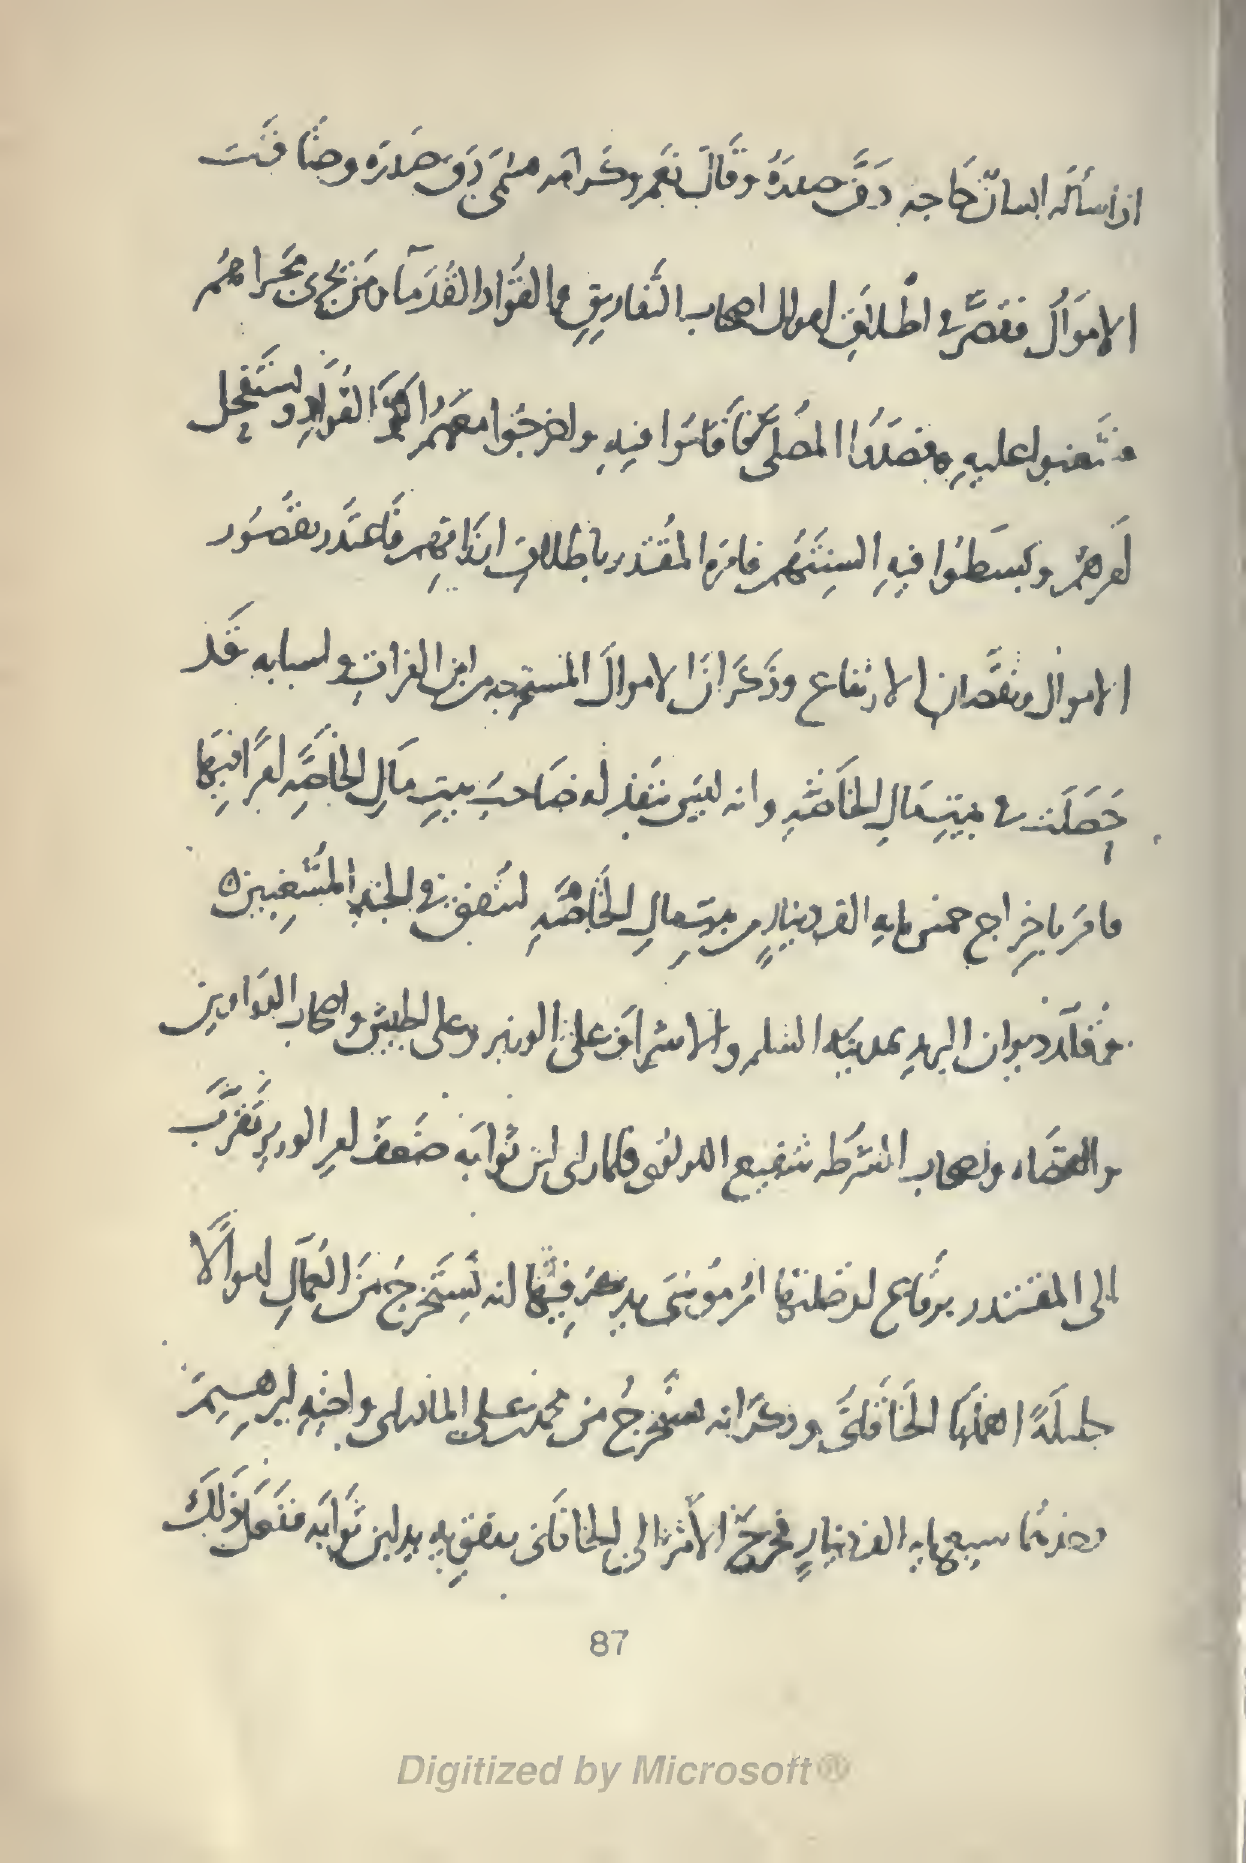 اذا سأله انسان حاجه دَقَّ صدره وقال نَعَم وكرامه فسُمّى دَق صَدره وضاقت
الاموَالُ فقصَّر في اطلاق اموال اصحاب التفاريقِ والقُوّاد القُدَمآء ومَن يجرى مجراهم
فشَغبوا عليهِ وقصَدُوا المُصلَّى فاقاموا فيهِ واخرجوا معهم اكثر القوّادِ واستفحل
امرهم وبَسَطُوا فيهِ السِنَتَهُم فامره المقتدر باطلاق ارزاقهم فاعتذر بقُصُور
الاموال ونقصان الارتفاع وذَكَر انّ الاموالَ المستخرجه من ابن الفراتِ واسبابه قَد
حَصَلَت في بَيتِ مَالِ الخاصّهِ وانه ليسَ ينفذ له صَاحب بيتِ مَالِ الخاصّهِ امرًا فيها
فامَر باخراج خمس مايه الف دينارٍ من بيت مالِ الخاصّهِ لتنفق في الجندِ المُشغِبين
وقُلّدَ ديوان البريدِ بمدينه السلم والاشرافَ على الوزير وعلى الجيش واصحاب الدواوينِ
والقضاه واصحاب الشرطه شفيع اللولوى فلما راى ابن ثوابه ضَعفَ امرِ الوزيرِ تَقرَّبَ
الى المقتدر برقاع اوصلتها اُمّ موسَى يذكر فيها انه يستَخرج مَن العمالِ اموالًا
جليلةً اهملها الخاقانى وذكرَ انه يستخرجُ من محمد بن على الماذرائى واخيهِ ابرهيم
وحدهما سبعمايه الف دينارٍ فخرجَ الأمرُ الى الخاقانى بتقويه يد ابن ثوابه ففعل ذلِكَ
87
Digitized by Microsoft®